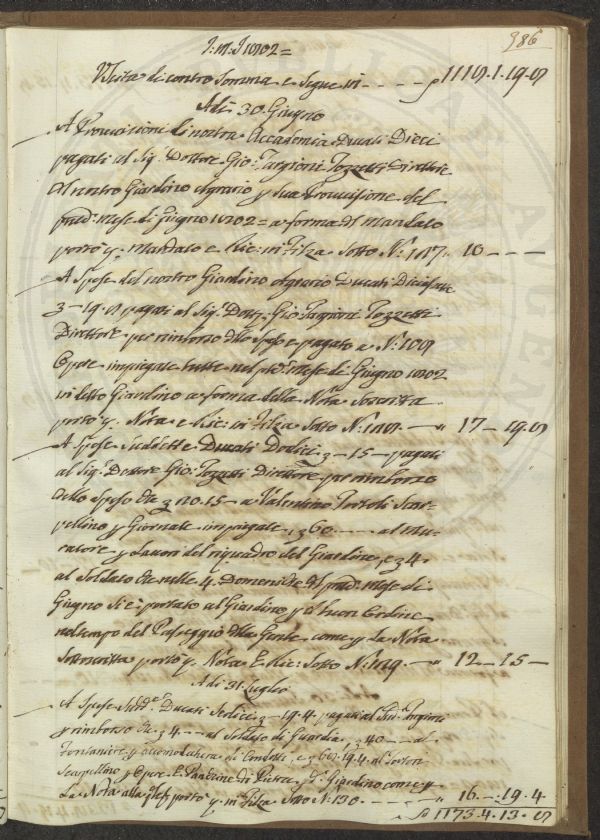 386
I: M: I 1782 =
Uscita di contro Somma e Segue in - - - - ƒ 1118.1.19.8
Adi 30. Giugno
A Provvisioni di nostra Accademia Ducati Dieci
pagati al Sig: Dottore Gio: Targioni Tozzetti Direttore
del nostro Giardino Agrario p sua Provvisione del
pnd: Mese di Giugno 1782 = a forma del Mandato
portò p: Mandato e Ric: in Filza Sotto N: 127. 10 - - -
A Spese del nostro Giardino Agrario Ducati Diciasette
3 - 19. 8 pagati al Sig: Dott: Gio: Targioni Tozzetti
Direttore per rimborso dello Speso e pagato a N: 108
Opere impiegate tutte nel pnd: Mese di Giugno 1782
in detto Giardino a forma della Nota Sottoscritta
portò p: Nota e Ric: in Filza Sotto N: 128. - " 17 - 19. 8
A Spese Suddette Ducati Dodici 3 - 15 - pagati
al Sig: Dottore Gio: Tozzetti Direttore per rimborso
dello Speso 20.15 - a Valentino Scar-
pellino p Giornate impiegate, 360 - - - al Mu-
ratore p Lavori del riquadro del Giardino, e 34.
al Soldato che nelle 4. Domeniche del pnd: Mese di
Giugno si è portato al Giardino p il buon Ordine
nel tempo del Passeggio della Gente come p La Nota
Sottoscritta portò p: Nota E Ric: Sotto N: 129 - " 12 - 15 -
Adi 31. Luglio
A Spese Sudd:e Ducati Sedici 3 - 19. 4. pagati al Sud: Targioni
p rimborso di 34 - - al Soldato di Guardia, 340 - - al
Fontaniere p accomodatura di Condotti, e 367. 19. 4 al
Scarpellino p Opere E Panchine di Pietra, p il Giardino come p
La Nota alla portò p: in Filza Sotto N: 130 - - - - " 16. - 19. 4
ƒ 1173. 4. 13. 8